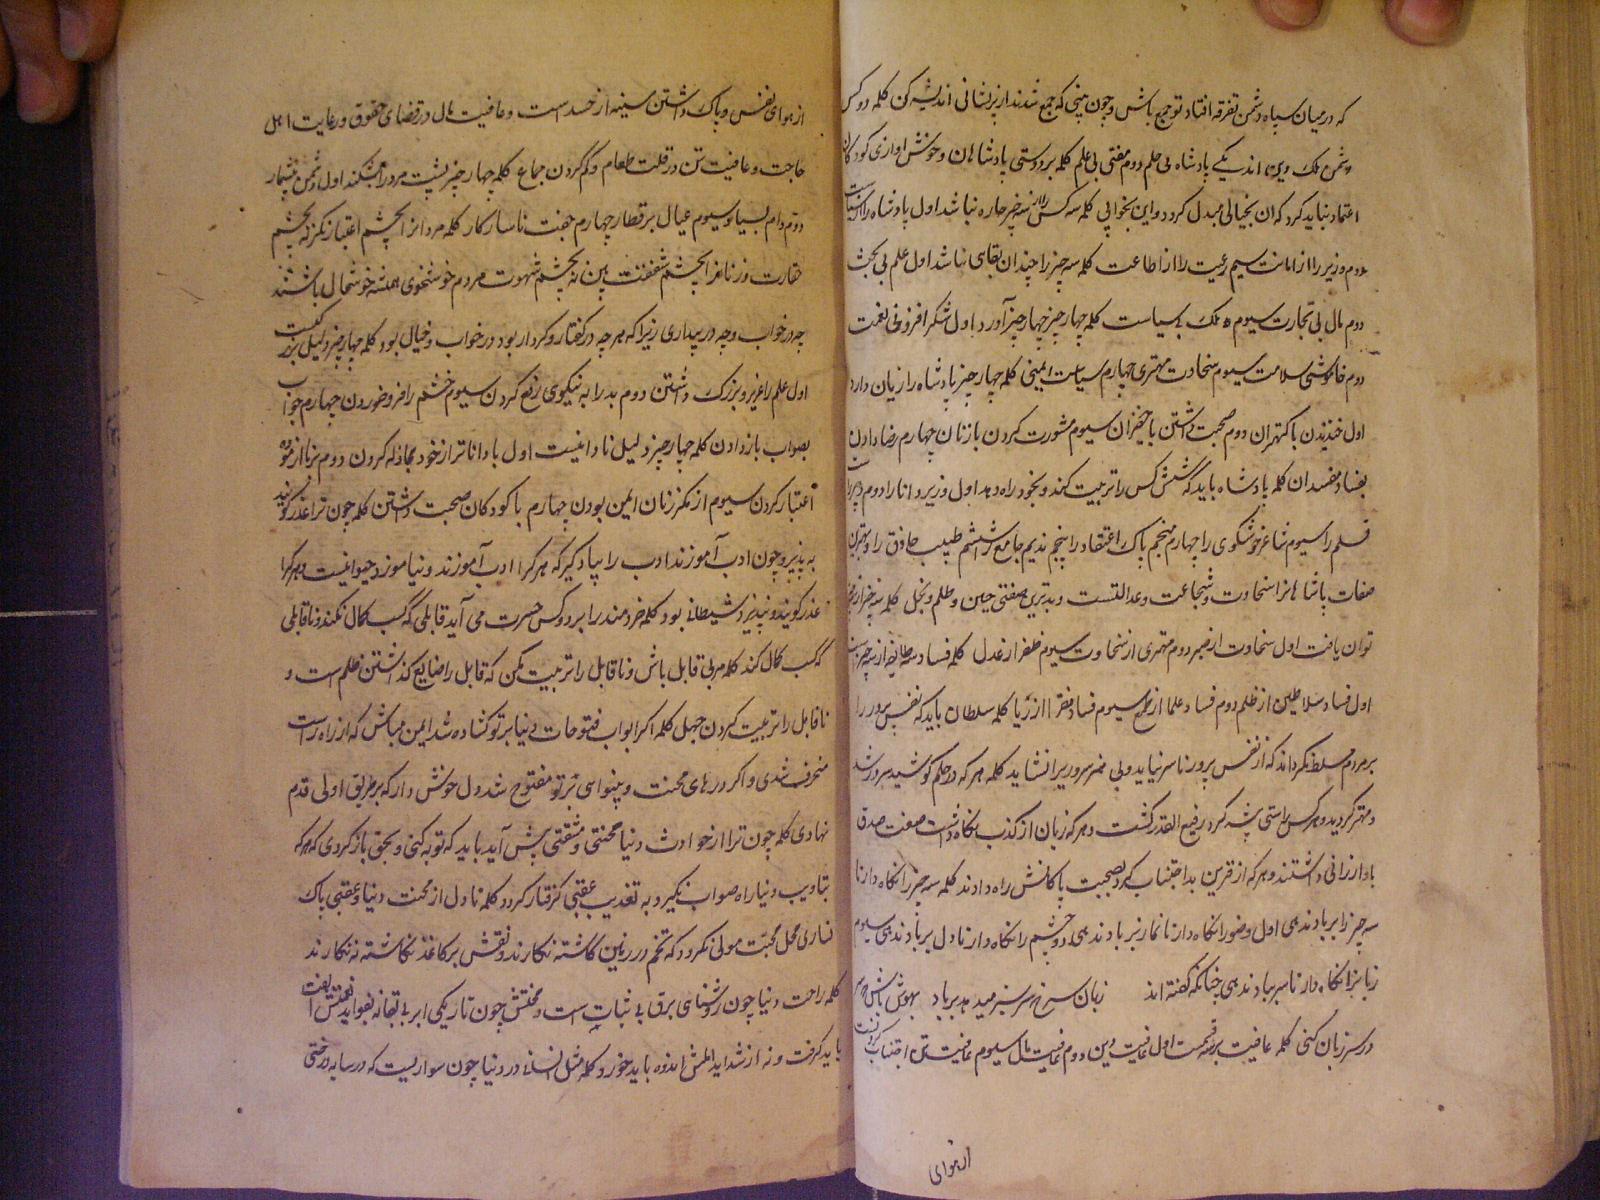 که در میان سپاه دشمن تفرقه افتاد تو جمع باش و چون بینی که جمع شدند از پریشانی اندیشه کن کلمه دو کس
دشمن ملک و دین اند یکی پادشاه بی حلم دوم مفتی بی علم کلمه بر دوستی پادشاهان و خوش اوازی کودکان
اعتماد نباید کرد که ان بخیالی مبدل گردد و این بخوابی کلمه سه کس را از سه چیز چاره نباشد اول پادشاه را از سیاست
دوم وزیر را از امانت سیم رعیت را از اطاعت کلمه سه چیز را چندان بقای نباشد اول علم بی بحث
دوم مال بی تجارت سیوم ملک بی سیاست کلمه چهار چیز چهار چیز آورد اول شکر افزونی نعمت
دوم خاموشی سلامت سیوم سخاوت مهتری چهارم سیاست ایمنی کلمه چهار چیز پادشاه را زیان دارد
اول خندیدن با کهتران دوم صحبت داشتن با حقیران سیوم مشورت کردن با زنان چهارم رضا دادن
بفساد مفسدان کلمه پادشاه باید که شش کس را تربیت کند و بخود راه دهد اول وزیر دانا را دوم دبیر
قلم را سیوم شاعر خوشگوی را چهارم منجم پاک اعتقاد را پنجم ندیم جامع را ششم طبیب حاذق را و بهترین
صفات پادشاهانرا سخاوت و شجاعت و عدالتست و بدترین صفتی جبن و ظلم و بخل کلمه سه چیز از سه چیز
توان یافت اول سخاوت از صبر دوم مهتری از سخاوت سیوم ظفر از عدل کلمه فساد سه طایفه از سه چیز است
اول فساد سلاطین از ظلم دوم فساد علما از طمع سیوم فساد فقرا از ریا کلمه سلطان باید که نفس پرور را
بر مردم مسلط نگرداند که از نفس پرور ناسر نیاید و بی هنر سروری را نشاید کلمه هر که در حلم کوشید سرور شد
و مهتر گردید و هر کس راستی پیشه کرد رفیع القدر گشت و هر که زبان از کذب نگاه داشت صفت صدق
باو ارزانی داشتند و هر که از قرین بد اجتناب کرد بصحبت پاکانش راه دادند کلمه سه چیز را نگاه دار تا
سه چیز را بر باد ندهی اول وضو را نگاه دار تا نماز بر باد ندهی دوم چشم را نگاه دار تا دل بر باد ندهی سیوم
زبانرا نگاه دار تا سر بباد ندهی چنانکه گفته اند زبان سرخ سر سبز میدهد بر باد بهوش باش که
در سر زبان کنی کلمه عافیت بر سه قسمست اول عافیت دین دوم عافیت مال سیوم عافیت تن اجتناب کردنست
از هوای
از هوای نفس و پاک داشتن سینه از حسد است و عافیت مال در قضای حقوق و رعایت اهل
حاجت و عافیت تن در قلت طعام و کم کردن جماع کلمه چهار چیز پشت مرد را بشکند اول دشمن بیشمار
دوم وام بسیار سیوم عیال بر قطار چهارم جفت ناسازکار کلمه مردانرا بچشم اعتبار نگر نه بچشم
حقارت و زنانرا بچشم شفقت بین نه بچشم شهوت مردم خوشخوی همیشه خوشحال باشند
چه در خواب و چه در بیداری زیرا که هر چه در گفتار و کردار بود در خواب و خیال بود کلمه چهار چیز دلیل بزرگیست
اول علم را عزیز و بزرگ داشتن دوم بد را به نیکوی رفع کردن سیوم خشم را فرو خوردن چهارم جواب
بصواب باز دادن کلمه چهار چیز دلیل نادانیست اول با داناتر از خود مجادله کردن دوم نا ازموده
اعتبار کردن سیوم از مکر زنان ایمن بودن چهارم با کودکان صحبت داشتن کلمه چون ترا عذر گویند
به پذیر و چون ادب آموزند ادب را یاد گیر که هر کرا ادب آموزند و نیاموزد حیوانیست و هر کرا
عذر گویند و نپذیرد شیطان بود کلمه خردمند را بر دو کس حسرت می آید قابلی که کسب کمال نکند و ناقابلی
که کسب کمال کند کلمه مربی قابل باش و ناقابل را تربیت مکن که قابل را ضایع گذاشتن ظلم است و
ناقابل را تربیت کردن جهل کلمه اگر ابواب فتوحات دنیا بر تو گشاده شد ایمن مباش که از راه راست
منحرف شدی و اگر درهای محنت و بینوایی بر تو مفتوح شد دل خوش دار که بر طریق اولی قدم
نهادی کلمه چون ترا از حوادث دنیا محنتی و مشقتی پیش آید باید که توبه کنی و بحق باز گردی که هر که
بتادیب دنیا راه صواب نگیرد به تعذیب عقبی گرفتار گردد کلمه تا دل از محبت دنیا و عقبی پاک
نسازی محل محبت مولی نگردد که تخم در زمین کاشته نکارند و نقش بر کاغذ نگاشته ننگارند
کلمه راحت دنیا چون روشنای برق بی ثبات است و محنتش چون تاریکی ابر بی بقا نه بفواید نعمتش الفت
باید گرفت و نه از شداید المش اندوه باید خورد کلمه مثل انسان در دنیا چون سواریست که در سایه درختی